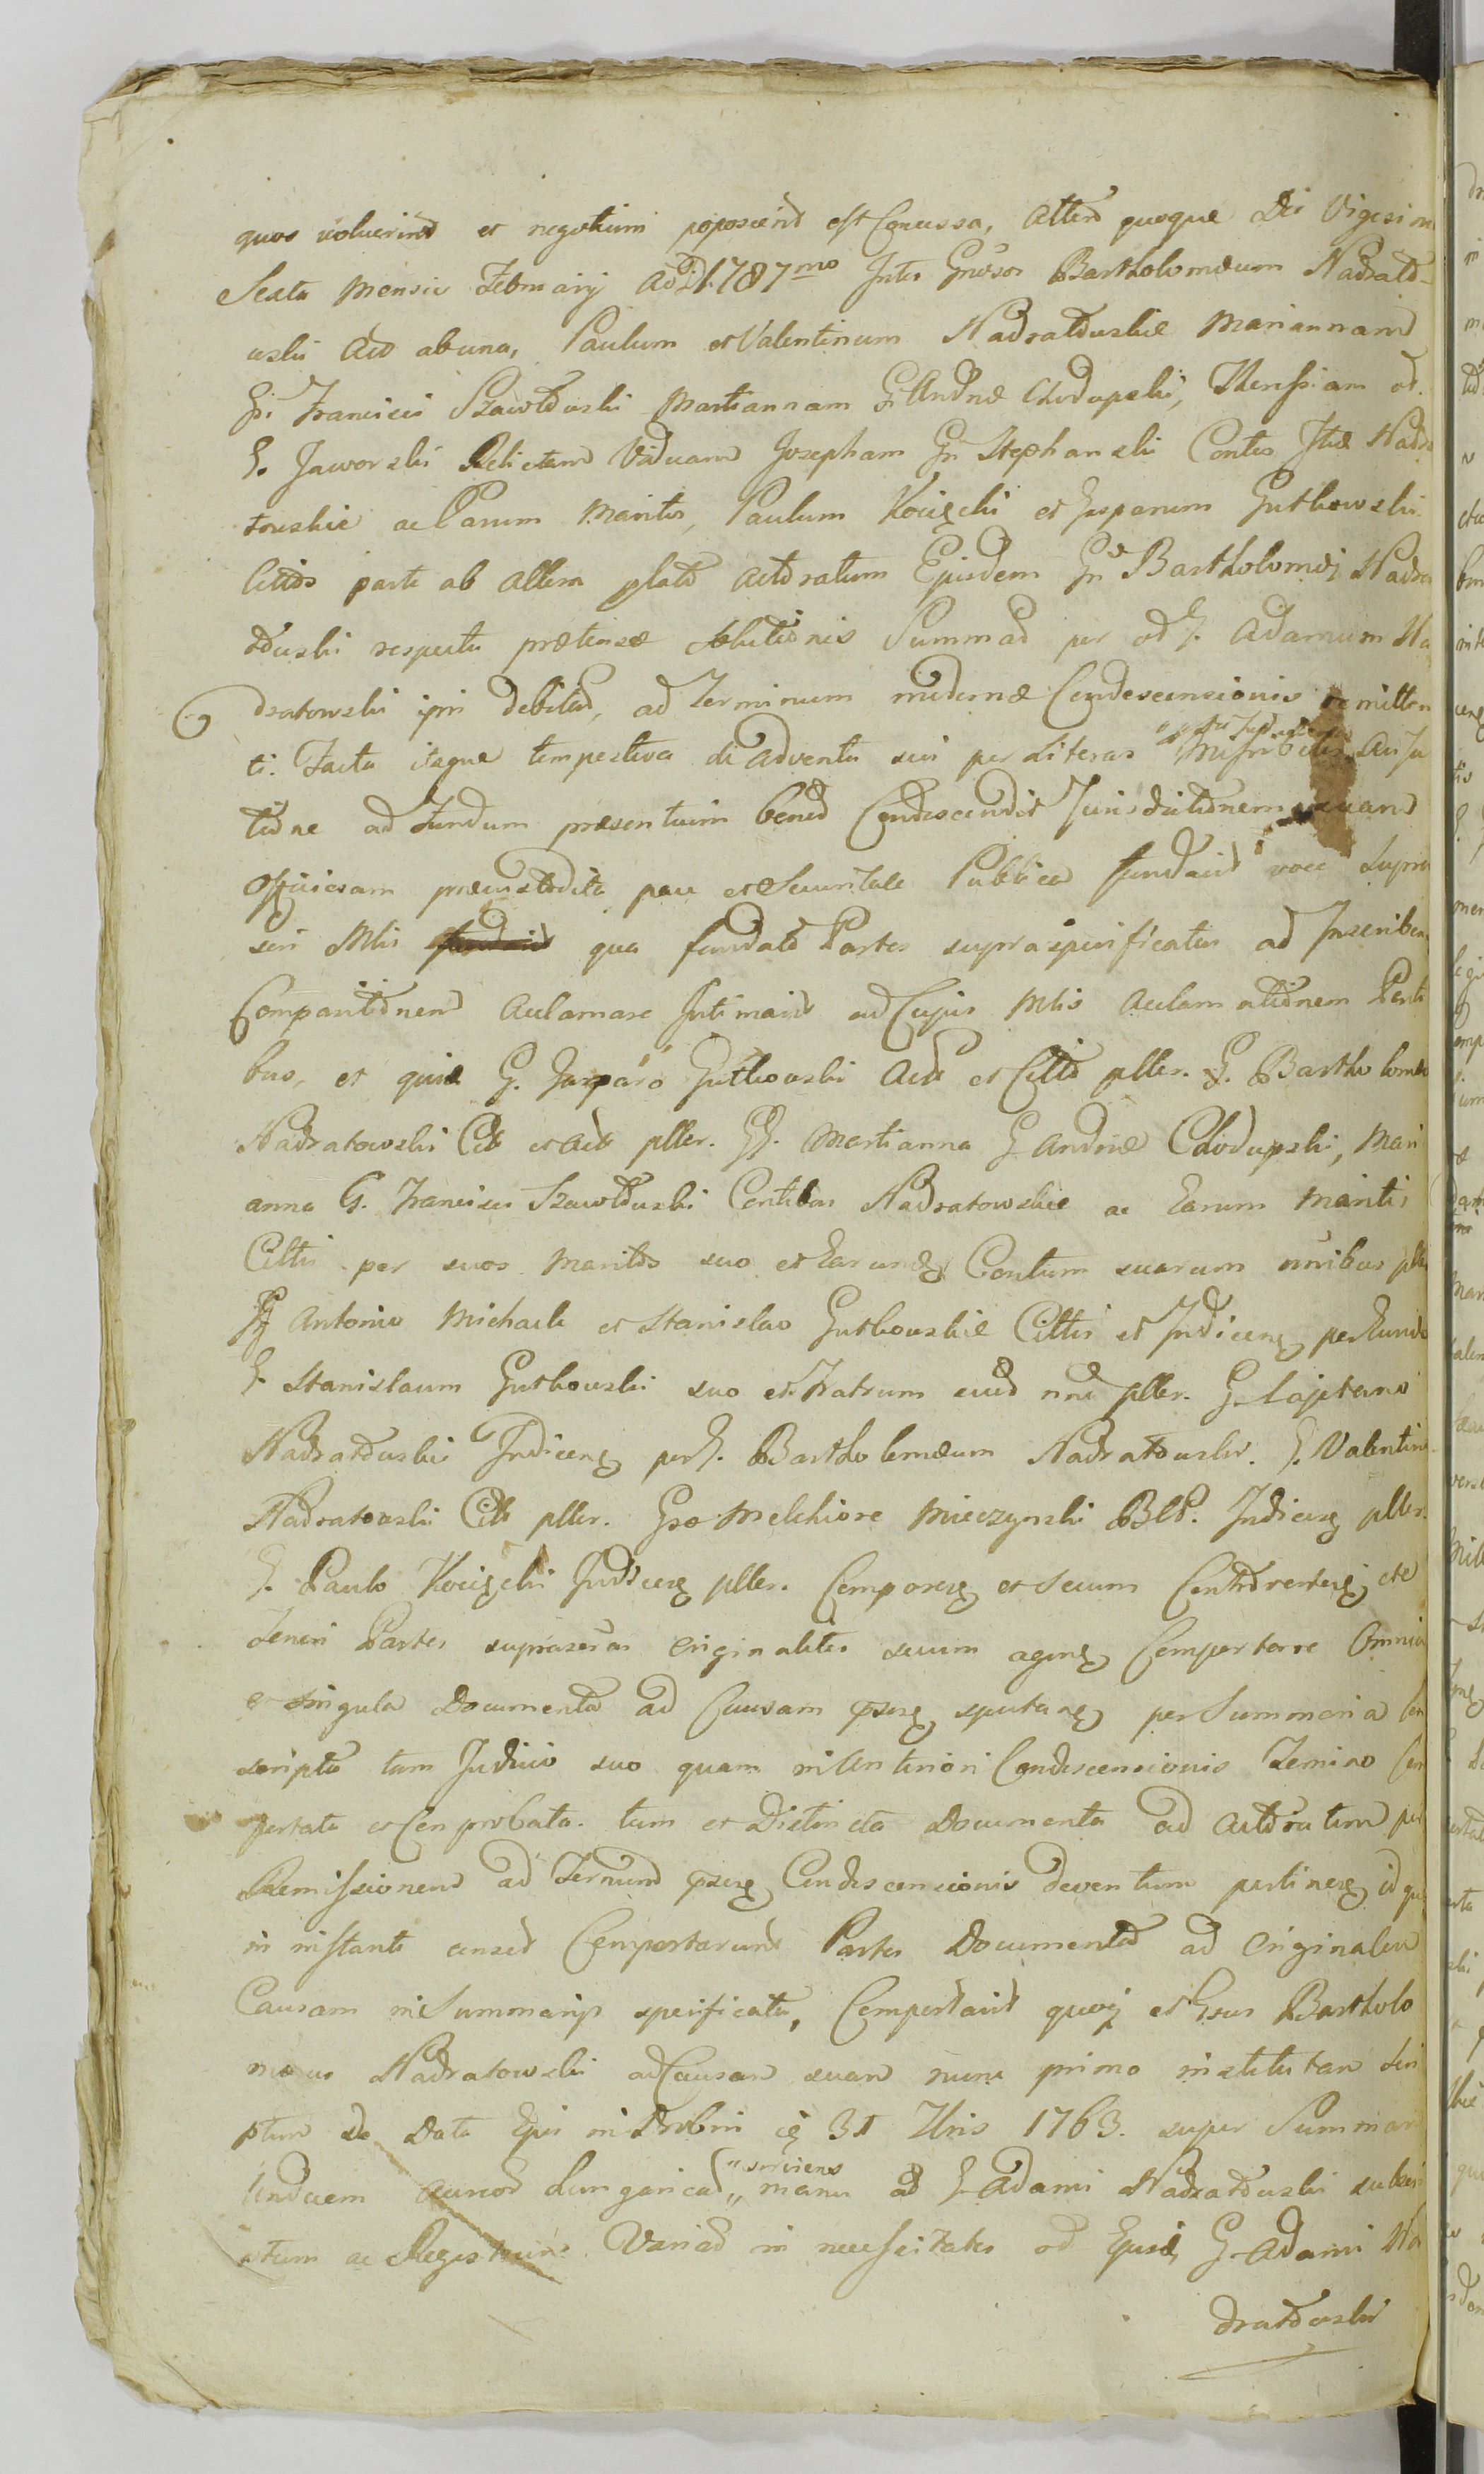 quos voluerint et negotium poposcerit est Concessa, altero quoque Die Vigesima
Sexta Mensis Februarij AD 1787mo Inter Gnrosos Bartholomæum Nadrato-
wski Act ab una, Paulum et Valentinum Nadratowskie Mariannam
G. Francisci Szawłowski Martiannam G. Andræ Chodupski, Theressiam od.
G. Jaworski Relictam Viduam Josepham Gn Stephanski Contes Itæ Nadra
towskie ac Earum Maritos, Paulum Kocięcki et Gasparum Gutkowski
Cittos parte ab altera plato Actoratum Ejusdem Gn Bartholomæj Nadra
towski respectu prætensæ Solutionis Summae per od G. Adamum Na
dratowski ipsi debitae, ad Terminum modernæ Condescensionis remitten
ti. Facta itaque tempestiva de adventu sui per Literas Innotes
tione ad Fundum præsentium bonor Condescendit Jurisdictionem suam
Officiosam præcustodita pace et Securitate Publica fundavit voce supra
scri Mlis qua fundata Partes supraspecificatas ad Inscriben
Comparitionem Aclamare Intimavit ad Cujus Mlis Aclamationem Parti
bus, et quidem G. Gasparo Gutkowski Acte et Citto pller. G. Bartholomæo
Nadratowski Citt et Act pller. GG. Martianna G. Andreæ Chodupski, Mari
anna G. Francisci Szawłowski Contibus Nadratowskie ac Earum Maritis
Cittis per suos Maritos suo et Earundem Contum suarum nnibus pller
GG Antonio Michaele et Stanislao Gutkowskie Cittis et Indicens per Eundem
G. Stanislaum Gutkowski suo et Fratrum suor nne pller. G. Cajetano
Nadratowski Indicens per G. Bartholomæum Nadratowski. G. Valentino
Nadratowski Citt pller. Gso Melchiore Mieczynski BCP. Indicens pller.
G. Paulo Kocięcki Indicens pller. Comporens et secum Controvertens, etc
Teneri Partes suprascras originaliter secum agens Comportare Omnia
et singula Documenta ad Causam psens spectans per Summaria Con
scripta tam Judicio suo quam in anteriori Condescensionis Termino Com
portata et Comprobata. tum et Distincta Documenta ad Actoratum per
Remissionem ad Ternum psens Condescensionis deventum pertinens idque
in instanti censet Comportarunt Partes Documenta ad Originalem
Causam in Summarijs specificata, Comportavit quoq et Gsus Bartholo
mæus Nadratowski ad Causam suam nunc primo institutam Scri
ptum de Data Ejus in Drobin 31 1763. super Summam
Undecem Aureor Hungaricae "serviens" manu od G. Adami Nadratowski subscri
ptum ac Registrum Variae in necessitates od Ejusd G. Adami Na
dratowski